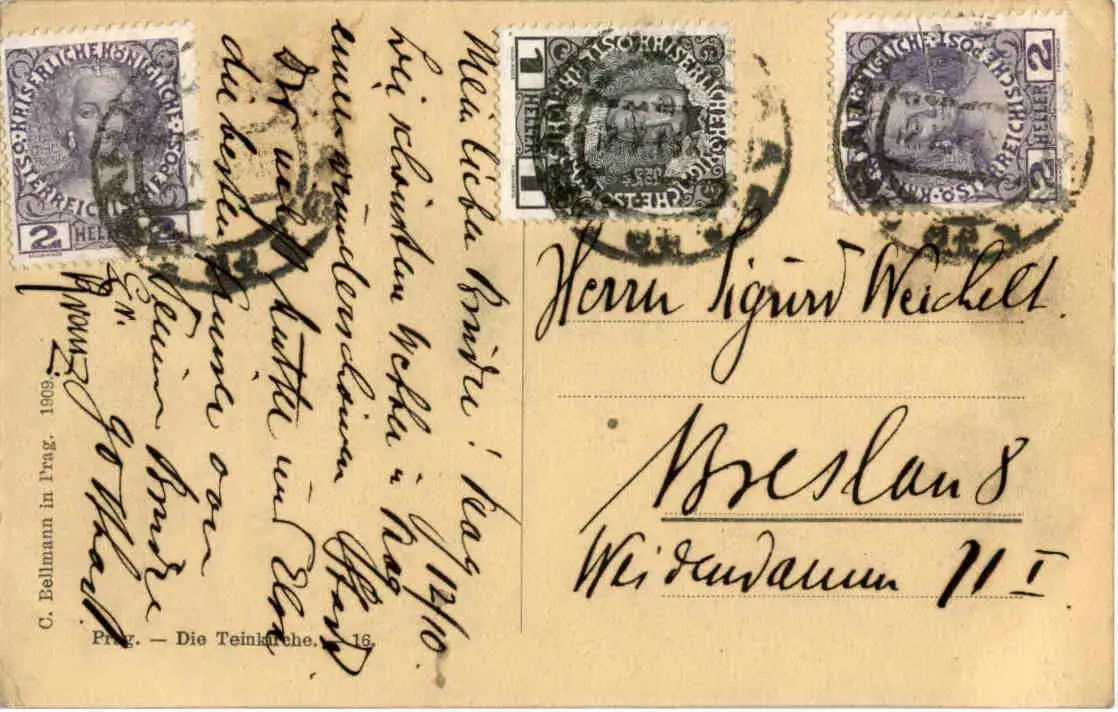 Mein lieber Bruder! Prag 9/12/10.
Die schönsten Wetter in Prag
einer wunderschönen Stadt
Dir nebst Mutter und Else
die besten Grüsse von
Deinem Bruder
Gotthard
KAISERLICHE KÖNIGLICHE ÖSTERREICHISCHE POST
2 HELLER 2
KAISERLICHE KÖNIGLICHE ÖSTERREICHISCHE POST
1 HELLER 1
KAISERLICHE KÖNIGLICHE ÖSTERREICHISCHE POST
2 HELLER 2
Herrn Sigurd Weichelt.
Breslau 8
Weidendamm 11 I
C. Bellmann in Prag. 1909.
Prag. — Die Teinkirche. 16.